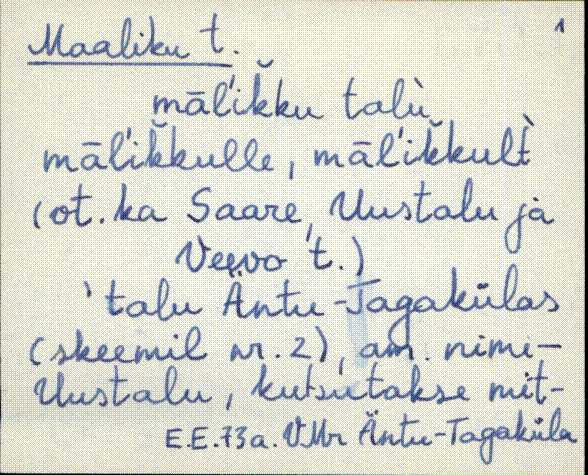 1
Maaliku t.
māl'ik̆ku talù
māl'ik̆kulle, māl'ik̆kult̀
(ot. ka Saare, Uustalu ja
Veevo t.)
'talu Äntu-Tagakülas
(skeemil nr. 2), am. nimi-
Uustalu, kutsutakse mit-
E.E.73a. VMr Äntu-Tagaküla